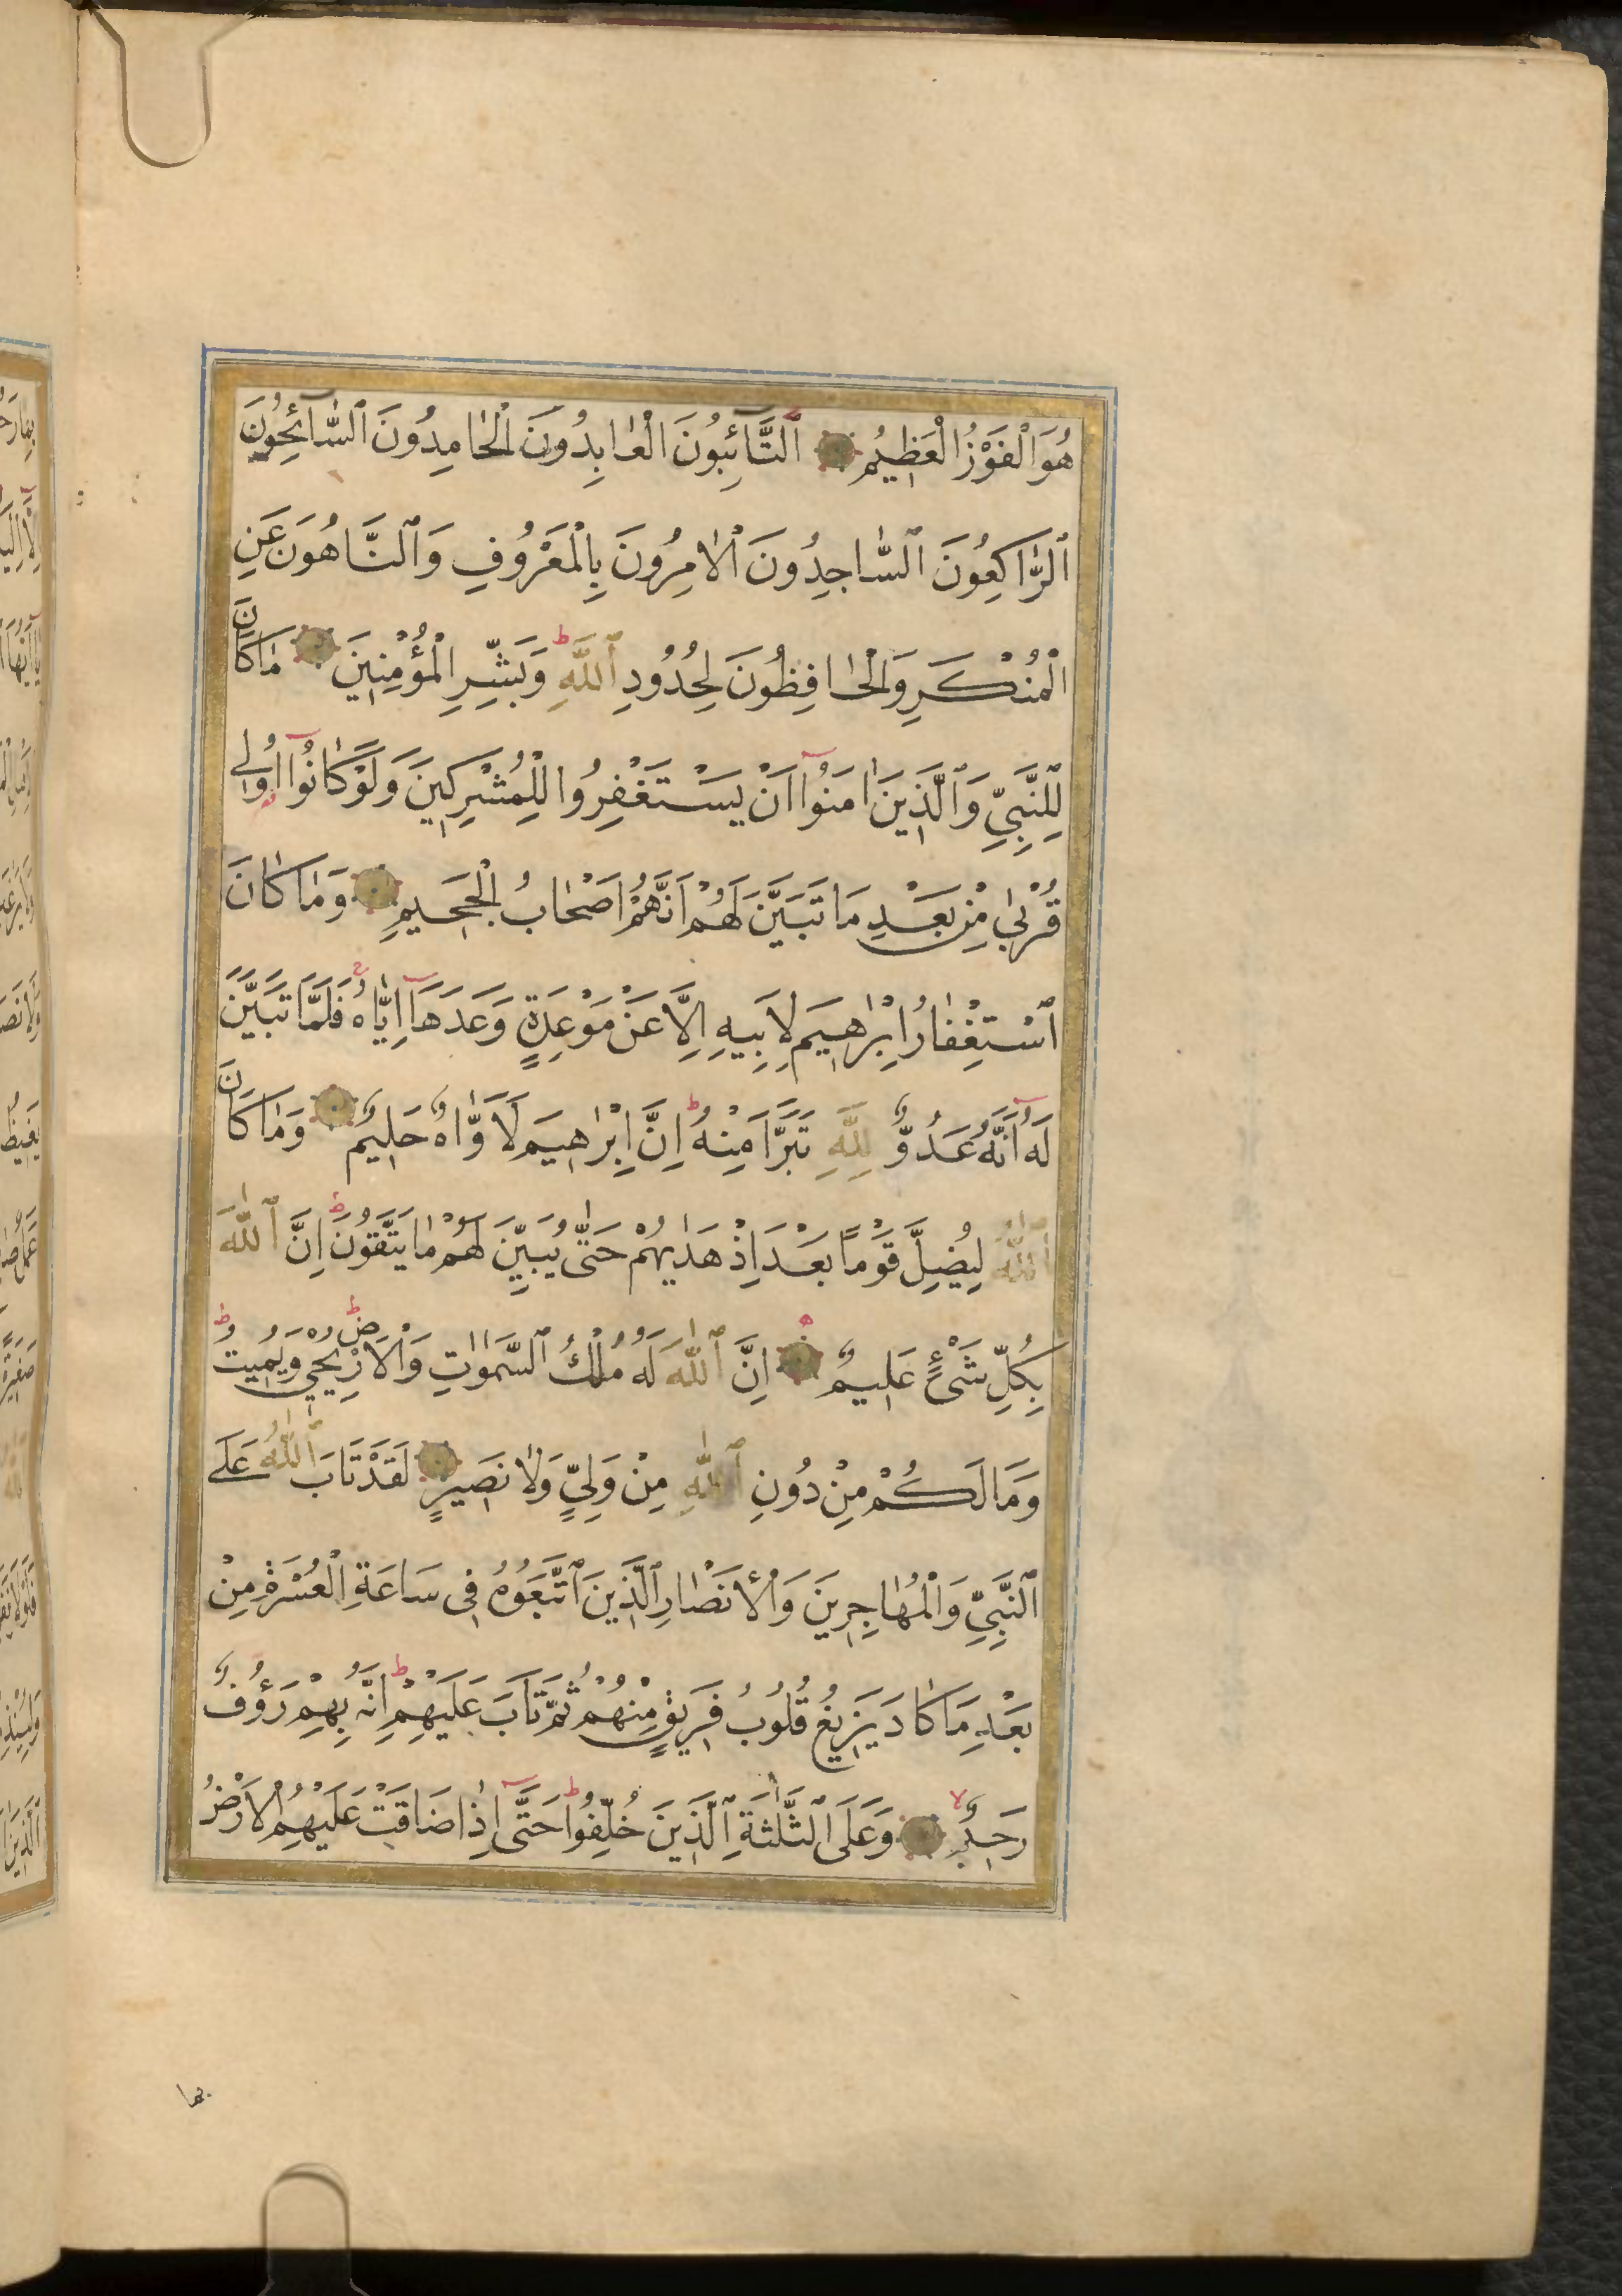 هُوَ الْفَوْزُ الْعَظِيمُ اَلتَّائِبُونَ الْعَابِدُونَ الْحَامِدُونَ السَّائِحُونَ
الرَّاكِعُونَ السَّاجِدُونَ الْاٰمِرُونَ بِالْمَعْرُوفِ وَالنَّاهُونَ عَنِ
الْمُنْكَرِ وَالْحَافِظُونَ لِحُدُودِ اللّٰهِ وَبَشِّرِ الْمُؤْمِنِينَ مَا كَانَ
لِلنَّبِيِّ وَالَّذِينَ اٰمَنُوا اَنْ يَسْتَغْفِرُوا لِلْمُشْرِكِينَ وَلَوْ كَانُوا اُولِي
قُرْبٰى مِنْ بَعْدِ مَا تَبَيَّنَ لَهُمْ اَنَّهُمْ اَصْحَابُ الْجَحِيمِ وَمَا كَانَ
اسْتِغْفَارُ اِبْرٰهِيمَ لِاَبِيهِ اِلَّا عَنْ مَوْعِدَةٍ وَعَدَهَا اِيَّاهُ فَلَمَّا تَبَيَّنَ
لَهُ اَنَّهُ عَدُوٌّ لِلّٰهِ تَبَرَّاَ مِنْهُ اِنَّ اِبْرٰهِيمَ لَاَوَّاهٌ حَلِيمٌ وَمَا كَانَ
اللّٰهُ لِيُضِلَّ قَوْمًا بَعْدَ اِذْ هَدٰيهُمْ حَتّٰى يُبَيِّنَ لَهُمْ مَا يَتَّقُونَ اِنَّ اللّٰهَ
بِكُلِّ شَيْءٍ عَلِيمٌ اِنَّ اللّٰهَ لَهُ مُلْكُ السَّمٰوَاتِ وَالْاَرْضِ يُحْيِي وَيُمِيتُ
وَمَا لَكُمْ مِنْ دُونِ اللّٰهِ مِنْ وَلِيٍّ وَلَا نَصِيرٍ لَقَدْ تَابَ اللّٰهُ عَلَى
النَّبِيِّ وَالْمُهَاجِرِينَ وَالْاَنْصَارِ الَّذِينَ اتَّبَعُوهُ فِي سَاعَةِ الْعُسْرَةِ مِنْ
بَعْدِ مَا كَادَ يَزِيغُ قُلُوبُ فَرِيقٍ مِنْهُمْ ثُمَّ تَابَ عَلَيْهِمْ اِنَّهُ بِهِمْ رَؤُفٌ
رَحِيمٌ وَعَلَى الثَّلٰثَةِ الَّذِينَ خُلِّفُوا حَتّٰى اِذَا ضَاقَتْ عَلَيْهِمُ الْاَرْضُ
بما